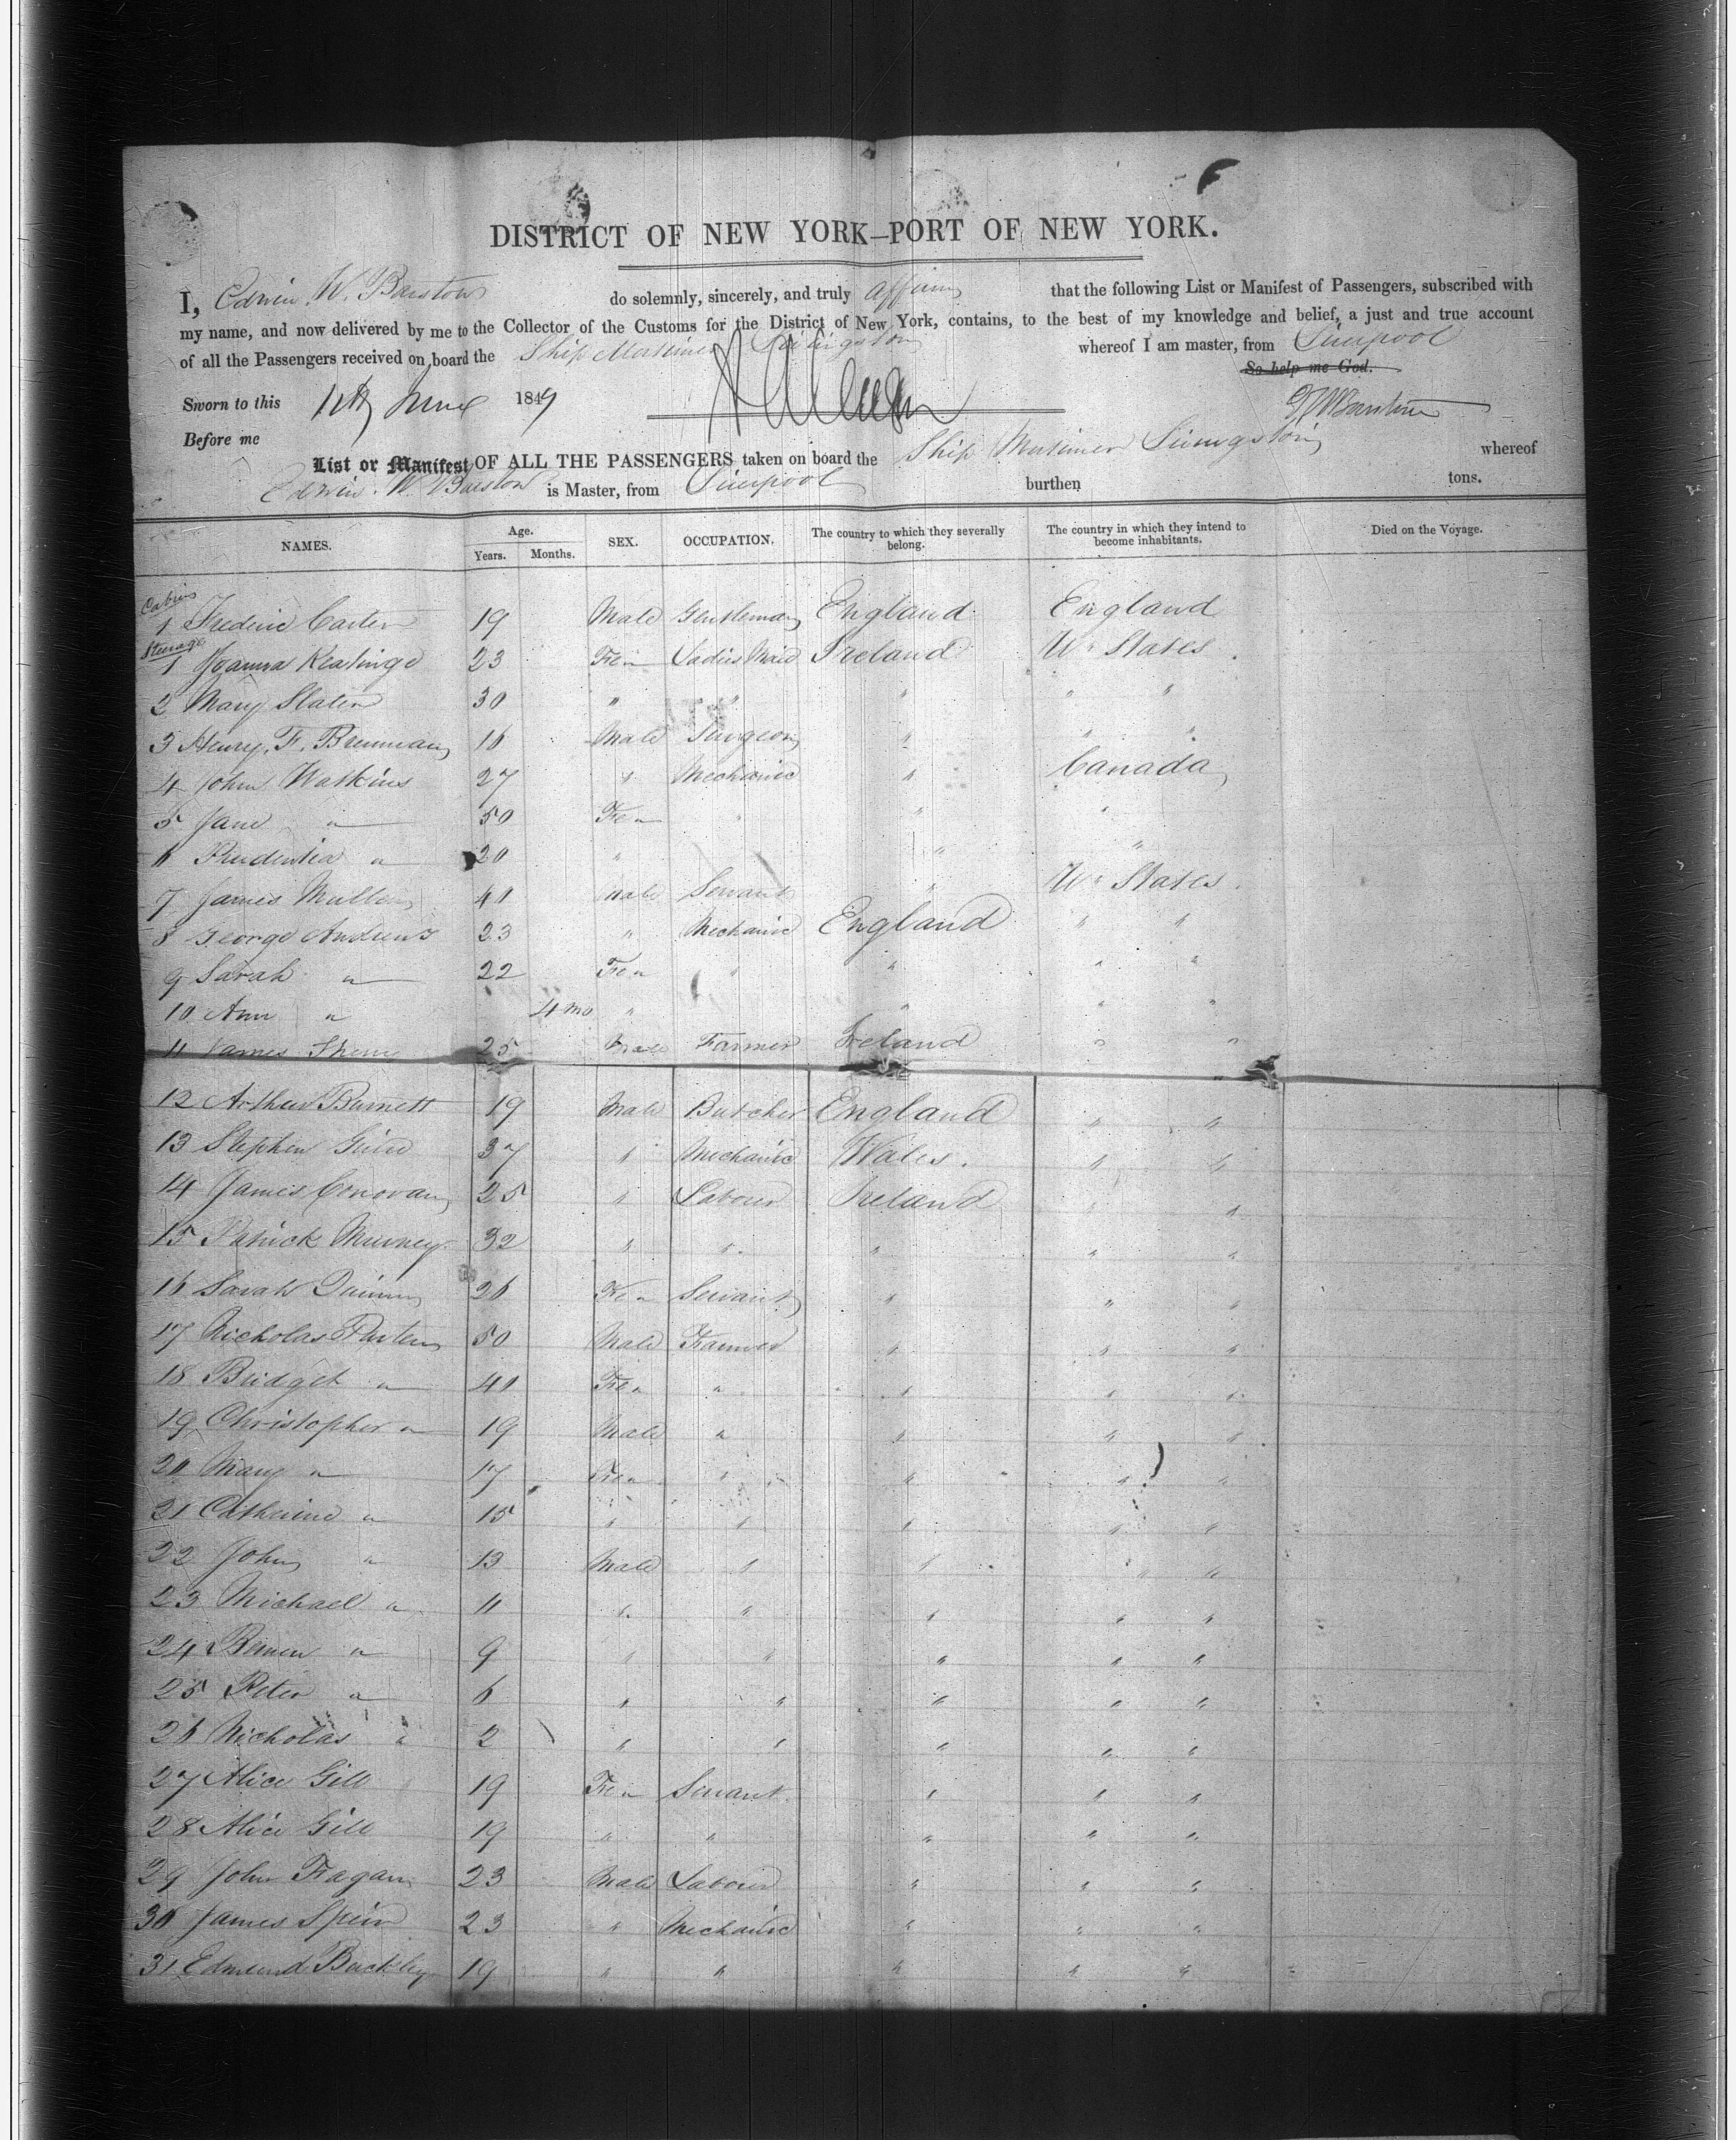 DISTRICT OF NEW YORK—PORT OF NEW YORK.
I, Edwin W. Barstow do solemnly, sincerely, and truly affirm that the following List or Manifest of Passengers, subscribed with
my name, and now delivered by me to the Collector of the Customs for the District of New York, contains, to the best of my knowledge and belief, a just and true account
of all the Passengers received on board the Ship Mortimer Livingston whereof I am master, from Liverpool
So help me God.
Sworn to this June 1849 EWBarstow
Before me
List or Manifest OF ALL THE PASSENGERS taken on board the Ship Mortimer Livingston whereof
Edwin W. Barstow is Master, from Liverpool burthen tons.
NAMES. Age. Years. Months. SEX. OCCUPATION. The country to which they severally belong. The country in which they intend to become inhabitants. Died on the Voyage.
Cabin
1 Frederic Carter 19 Male Gentleman England England
Steerage
1 Joanna Keatinge 23 Fem Ladies Maid Ireland U. States
2 Mary Slater 30 " " " " "
3 Henry. F. Brennan 16 Male Surgeon " " "
4 John Watkins 27 " Mechanic " Canada
5 Jane " 50 Fem " " "
6 Prudentia " 20 " " "
7 James Mullen 40 Male Servant " U. States
8 George Andrews 23 " Mechanic England " "
9 Sarah " 22 Fem " " " "
10 Ann " 4 mo " " " "
11 James 25 Male Farmer Ireland " "
12 Arthur Burnett 19 Male Butcher England " "
13 Stephen 37 " Mechanic Wales. " "
14 James Conovan 25 " Labour Ireland " "
15 Patrick 32 " " " " "
16 Sarah Quinn 26 Fem Servant " " "
17 Nicholas 50 Male Farmer " " "
18 Bridget " 40 Fem " " " "
19 Christopher " 19 Male " " " "
20 Mary " 17 Fem " " " "
21 Catherine " 15 " " " " "
22 John " 13 Male " " " "
23 Michael " 11 " " " " "
24 " 9 " " " " "
25 Peter " 6 " " " " "
26 Nicholas " 2 " " " " "
27 Alice Gill 19 Fem Servant " " "
28 Alice Gill 19 " " " " "
29 John Fagan 23 Male Labour " " "
30 James 23 " Mechanic " " "
31 Edmund Buckley 19 " " " " "